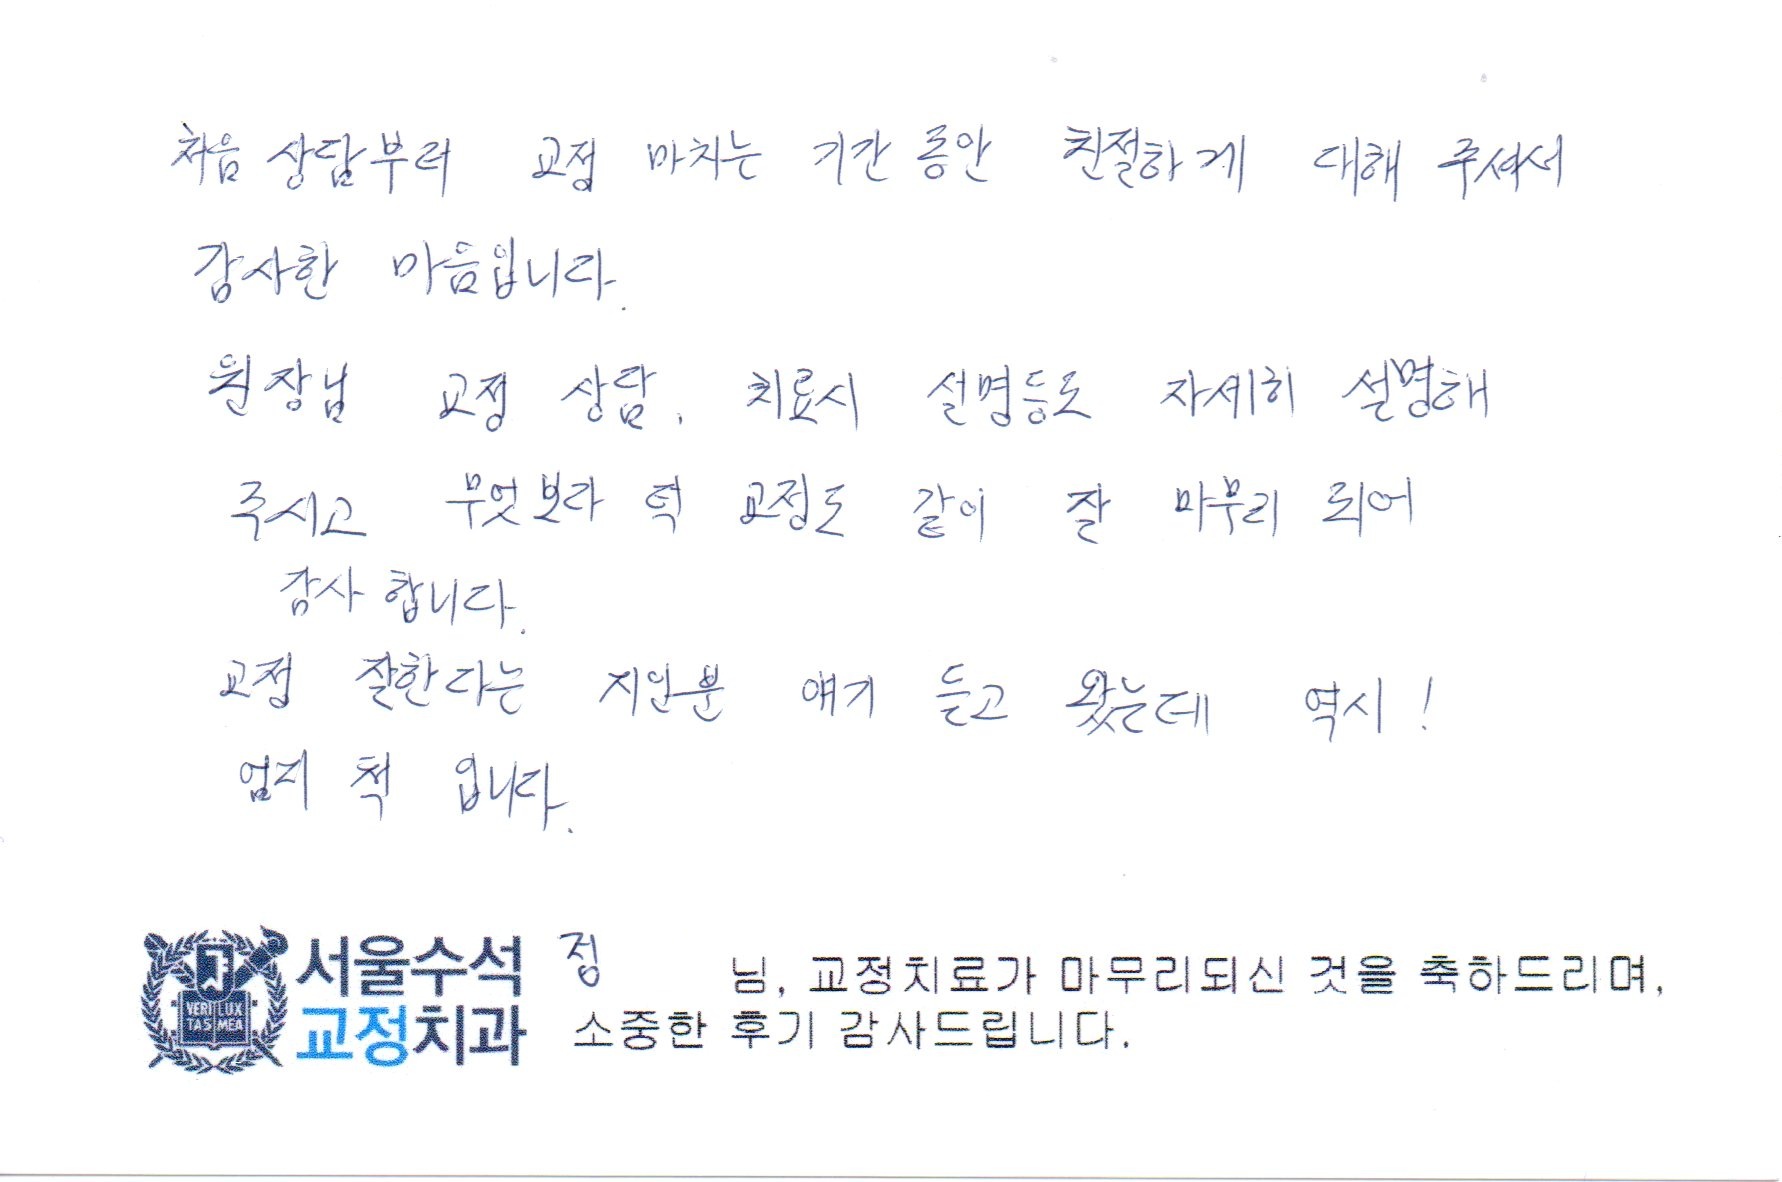 처음 상담부터 교정 마치는 기간 동안 친절하게 대해 주셔서
감사한 마음입니다.
원장님 교정 상담, 치료시 설명등도 자세히 설명해
주시고 무엇보다 턱 교정도 같이 잘 마무리 되어
감사 합니다.
교정 잘한다는 지인분 얘기 듣고 왔는데 역시!
엄지 척 입니다.
서울수석
교정치과
VERI LUX
TAS MEA
정 님, 교정치료가 마무리되신 것을 축하드리며,
소중한 후기 감사드립니다.